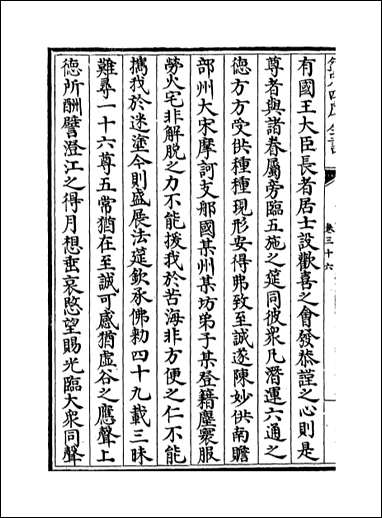 欽定四庫全書
卷三十六
有國王大臣長者居士設歡喜之會發恭謹之心則是
尊者與諸眷屬旁臨五施之筵同彼衆凡潛運六通之
德方方受供種種現形安得弗致至誠遂陳妙供南贍
部州大宋摩訶支那國某州某坊弟子某登籍塵寰服
勞火宅非解脫之力不能援我於苦海非方便之仁不能
擕我於迷塗今則盛展法筵欽承佛勅四十九載三昧
難尋一十六尊五常猶在至誠可感猶虛谷之應聲上
德所酬譬澄江之得月想垂哀愍望賜光臨大衆同聲